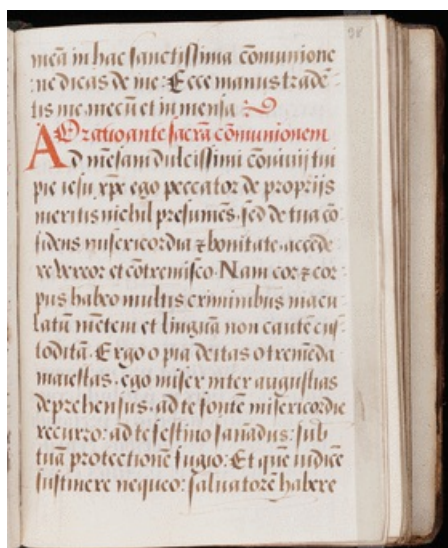 98
meā in hac sanctissima cōmunione
ne dicas de me: Ecce manus tradē-
tis me mecū et in mensa
Oratio ante sacrā cōmunionem
Ad mēsam dulcissimi cōuiuij tui
pie iesu xp̄e ego peccator de proprijs
meritis nichil presumēs, sed de tua cō
fidens misericordia ⁊ bonitate accede
re vereor et cōtremisco. Nam cor ⁊ cor-
pus habeo multis criminibus macu
latū mētem et linguā non caute cus-
toditā. Ergo o pia deitas o tremēda
maiestas, ego miser inter augustias
deprehensus, ad te fontē misericordie
recurro: ad te festino sanādus: sub
tuā protectionē fugio: Et quē iudicē
sustinere nequeo: saluatorē habere